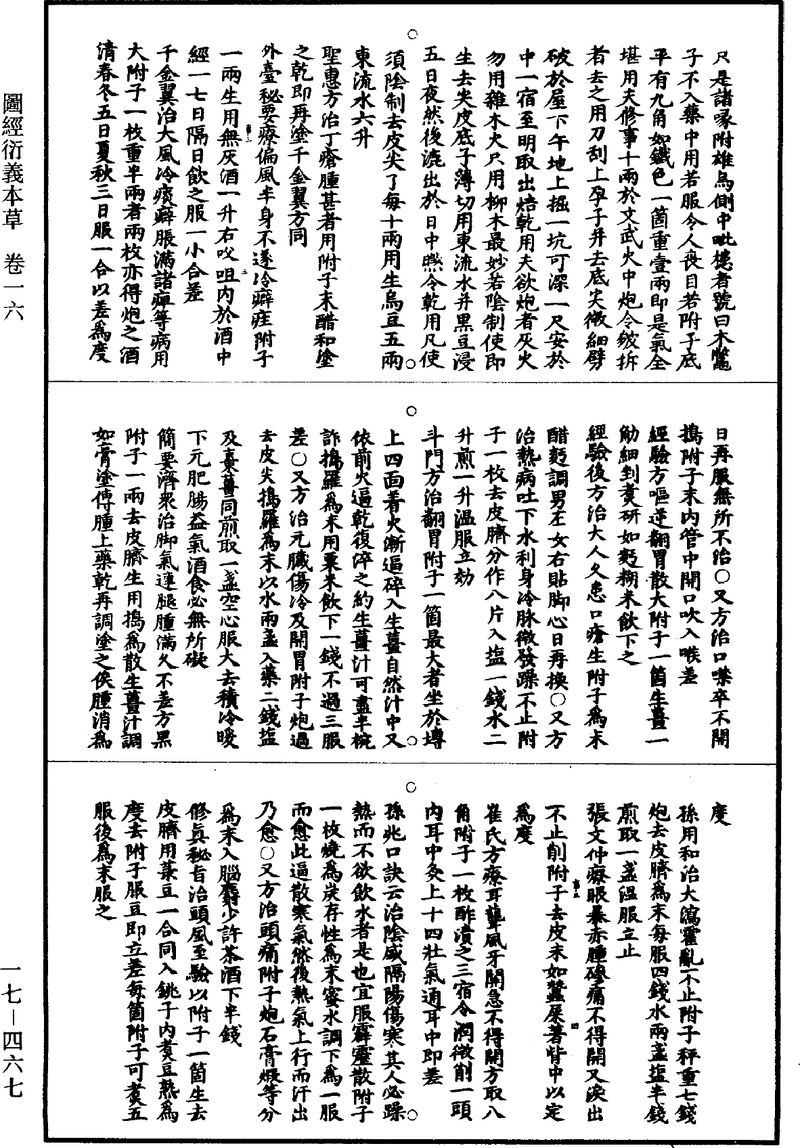 圖經衍義本草　卷一六
一七－四六七
只是諸喙附雄烏側中毗槵者號曰木鼈
子不入藥中用若服令人喪目若附子底
平有九角如鐵色一箇重壹兩即是氣全
堪用夫修事十兩於文武火中炮令皴拆
者去之用刀刮上孕子并去底尖微細劈
破於屋下午地上掘一坑可深一尺安於
中一宿至明取出焙乾用夫欲炮者灰火
勿用雜木火只用柳木最妙若陰制使即
生去尖皮底子薄切用東流水并黑豆浸
五日夜然後漉出於日中㬠令乾用凡使
須陰制去皮尖了每十兩用生烏豆五兩
東流水六升
聖惠方治丁瘡腫甚者用附子末醋和塗
之乾即再塗千金翼方同
外臺秘要療偏風半身不遂冷癖疰附子
一兩生用無灰酒一升右㕮咀内於酒中
經一七日隔日飲之服一小合差
千金翼治大風冷痰癖脹滿諸痹等病用
大附子一枚重半兩者兩枚亦得炮之酒
漬春冬五日夏秋三日服一合以差爲度
日再服無所不治○又方治口噤卒不開
搗附子末内管中開口吹入喉差
經驗方嘔逆翻胃散大附子一箇生薑一
觔細剉煑研如麪糊米飲下之
經驗後方治大人久患口瘡生附子爲末
醋麪調男左女右貼脚心日再換○又方
治熱病吐下水利身冷脉微發躁不止附
子一枚去皮臍分作八片入塩一錢水二
升煎一升温服立効
斗門方治翻胃附子一箇最大者坐於塼
上四面着火漸逼碎入生薑自然汁中又
依前火逼乾復淬之約生薑汁可盡半椀
許搗羅爲末用粟米飲下一錢不過三服
差○又方治元臟傷冷及開胃附子炮過
去皮尖搗羅爲末以水兩盞入藥二錢塩
及棗薑同煎取一盞空心服大去積冷暖
下元肥腸益氣酒食必無所礙
簡要濟衆治脚氣連腿腫滿久不差方黑
附子一兩去皮臍生用搗爲散生薑汁調
如膏塗傅腫上藥乾再調塗之俟腫消爲
度
孫用和治大瀉霍亂不止附子秤重七錢
炮去皮臍爲末每服四錢水兩盞塩半錢
煎取一盞温服立止
張文仲療眼暴赤腫磣痛不得開又淚出
不止削附子去皮末如蠶屎著眥中以定
爲度
崔氏方療耳聾風牙關急不得開方取八
角附子一枚酢漬之三宿令潤微削一頭
内耳中灸上十四壯氣通耳中即差
孫兆口訣云治陰盛隔陽傷寒其人必躁
熱而不欲飲水者是也宜服霹靂散附子
一枚燒爲炭存性爲末蜜水調下爲一服
而愈此逼散寒氣然後熱氣上行而汗出
乃愈○又方治頭痛附子炮石膏煅等分
爲末入腦麝少許茶酒下半錢
修真秘旨治頭風至驗以附子一箇生去
皮臍用菉豆一合同入銚子内煑豆熟爲
度去附子服豆即立差每箇附子可煑五
服後爲末服之